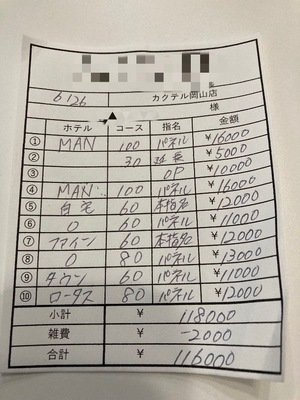 6/26 カクテル岡山店
様
ホテル コース 指名 金額
① MAN 100 パネル ¥16000
② 30 延長 ¥5000
③ OP ¥10000
④ MAN 100 パネル ¥16000
⑤ 自宅 60 本指名 ¥12000
⑥ O 60 パネル ¥11000
⑦ ファイン 60 本指名 ¥12000
⑧ O 80 パネル ¥13000
⑨ タウン 60 パネル ¥11000
⑩ ロータス 80 パネル ¥12000
小計 ¥ 118000
雑費 ¥ -2000
合計 ¥ 116000